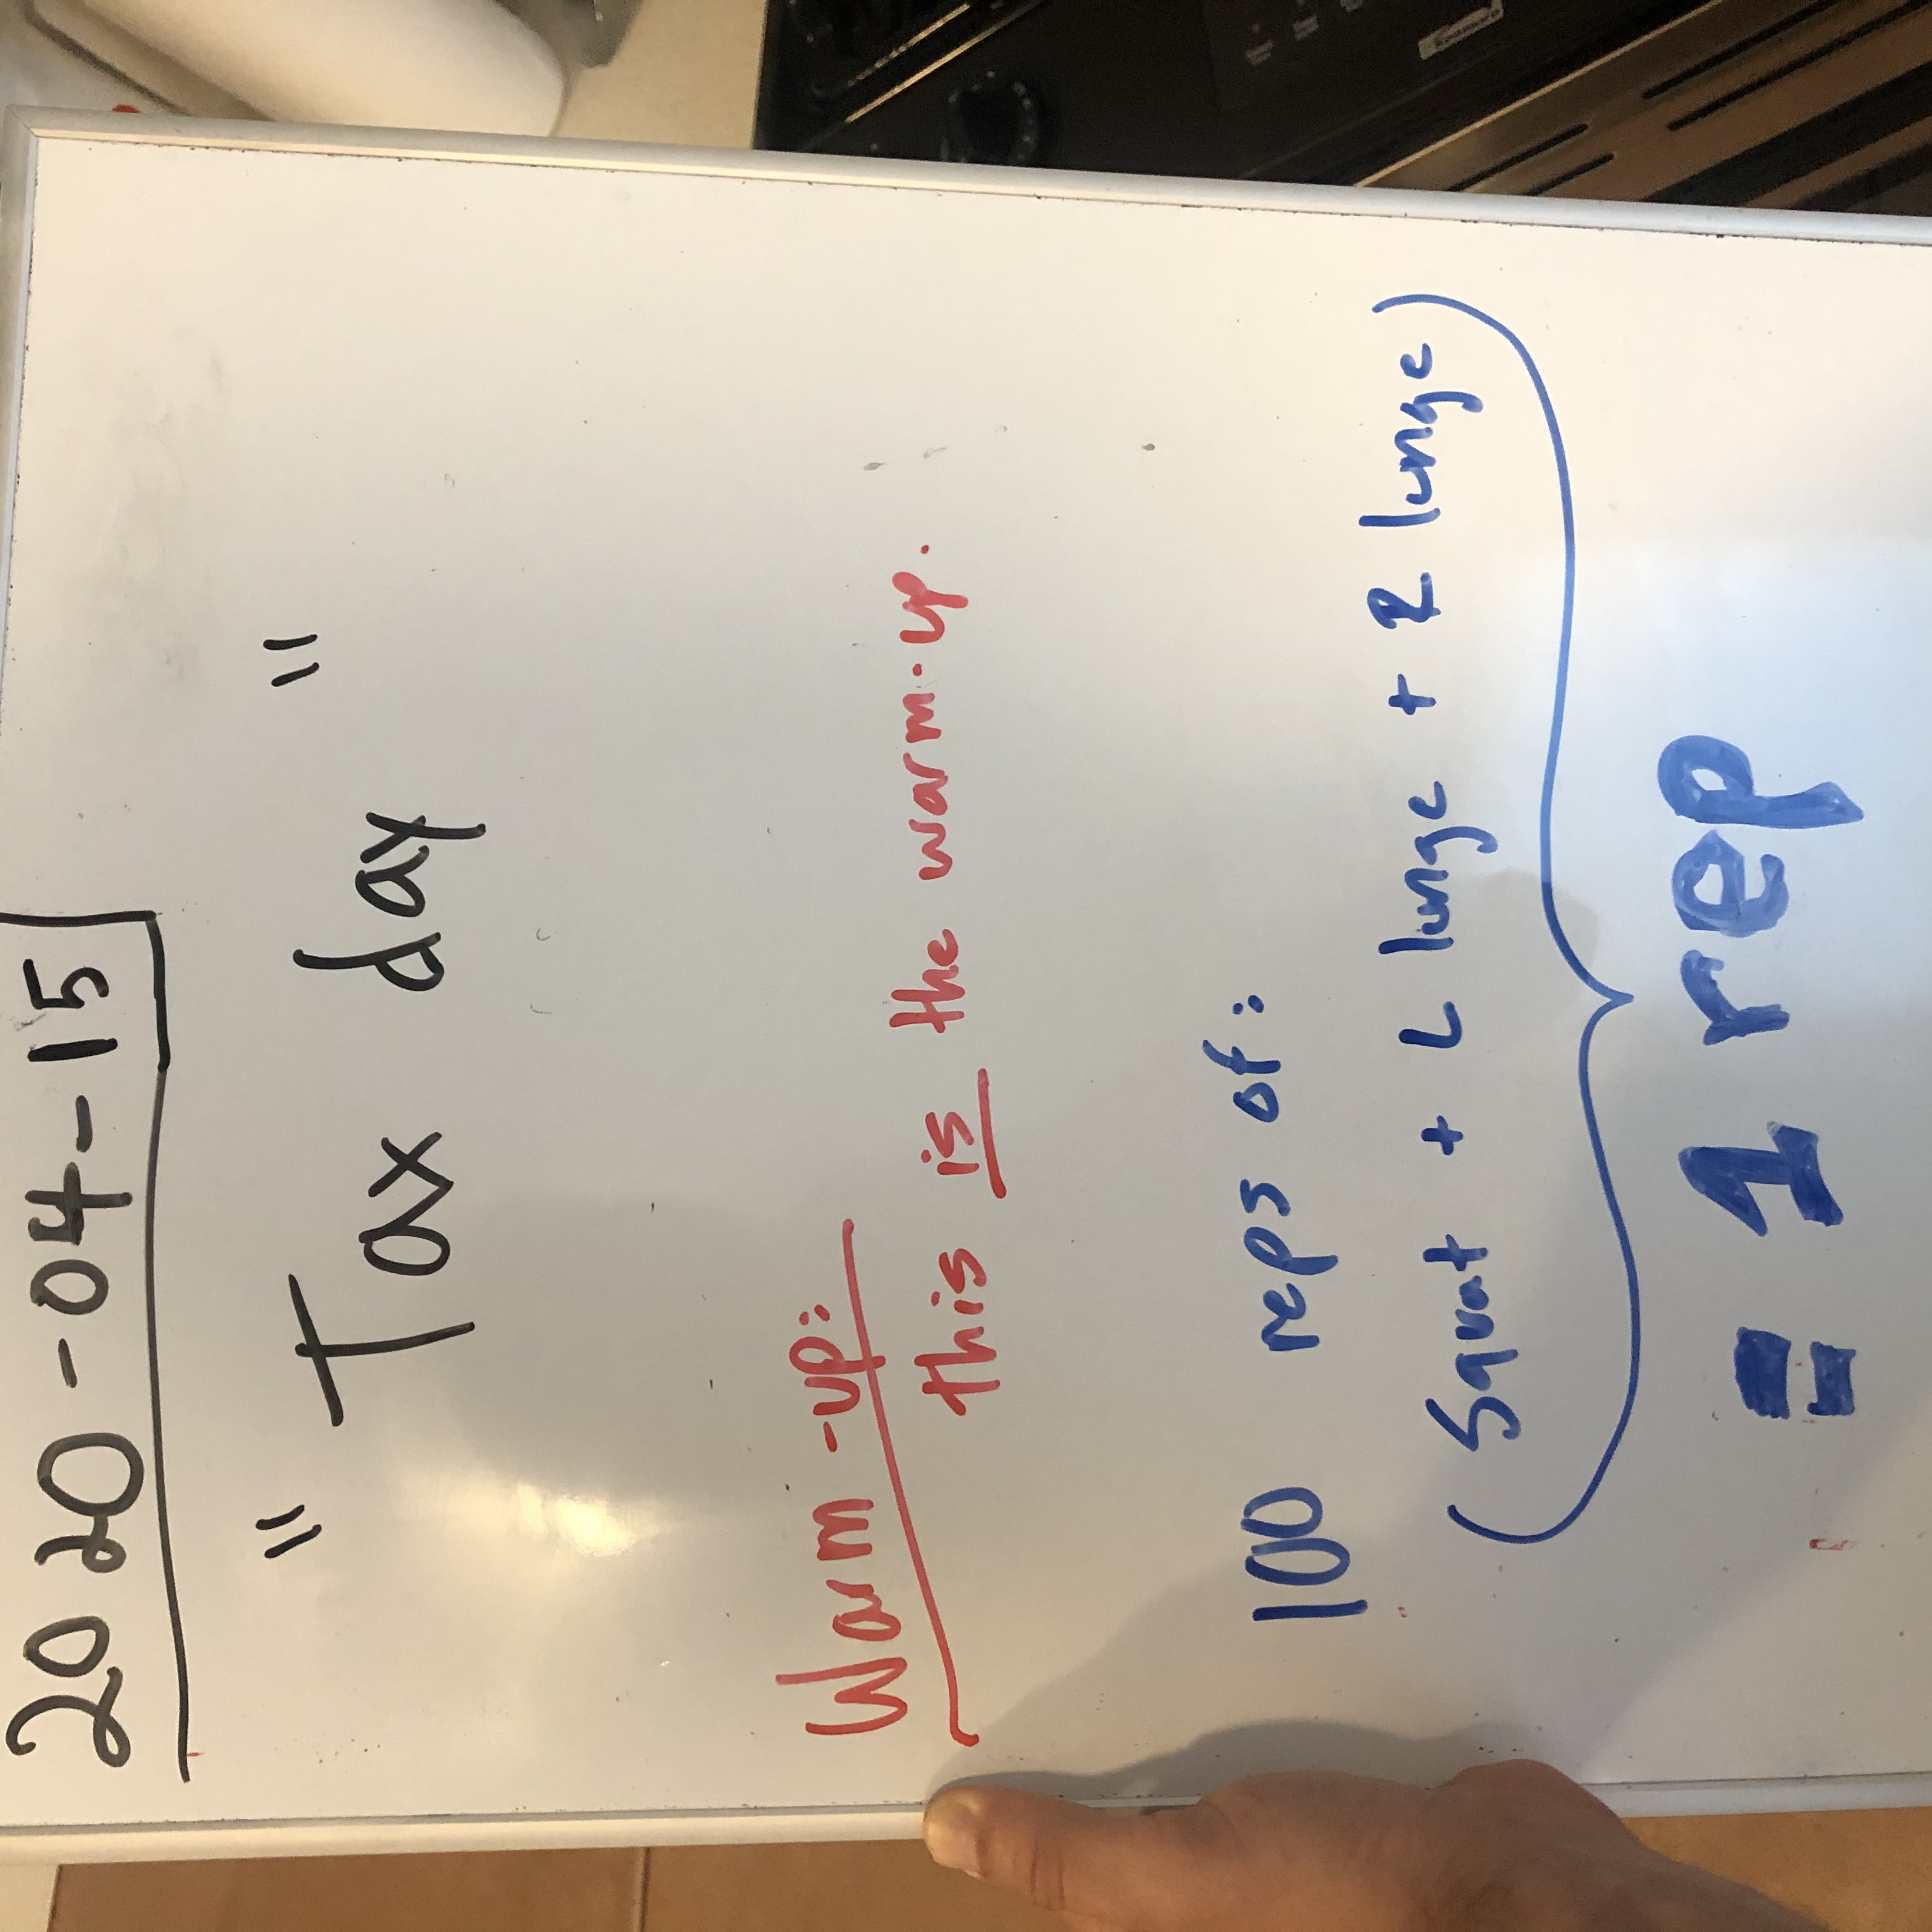 2020-04-15
"Tax day"
Warm-up:
this is the warm-up.
100 reps of:
(Squat + L lunge + R lunge)
= 1 rep